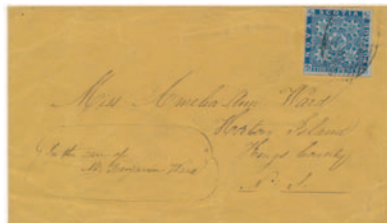 SCOTIA
Miss Amelia Ann Ward
Horton Island
Kings County
N. S.
In the care of
Mr. Benjamin Ward